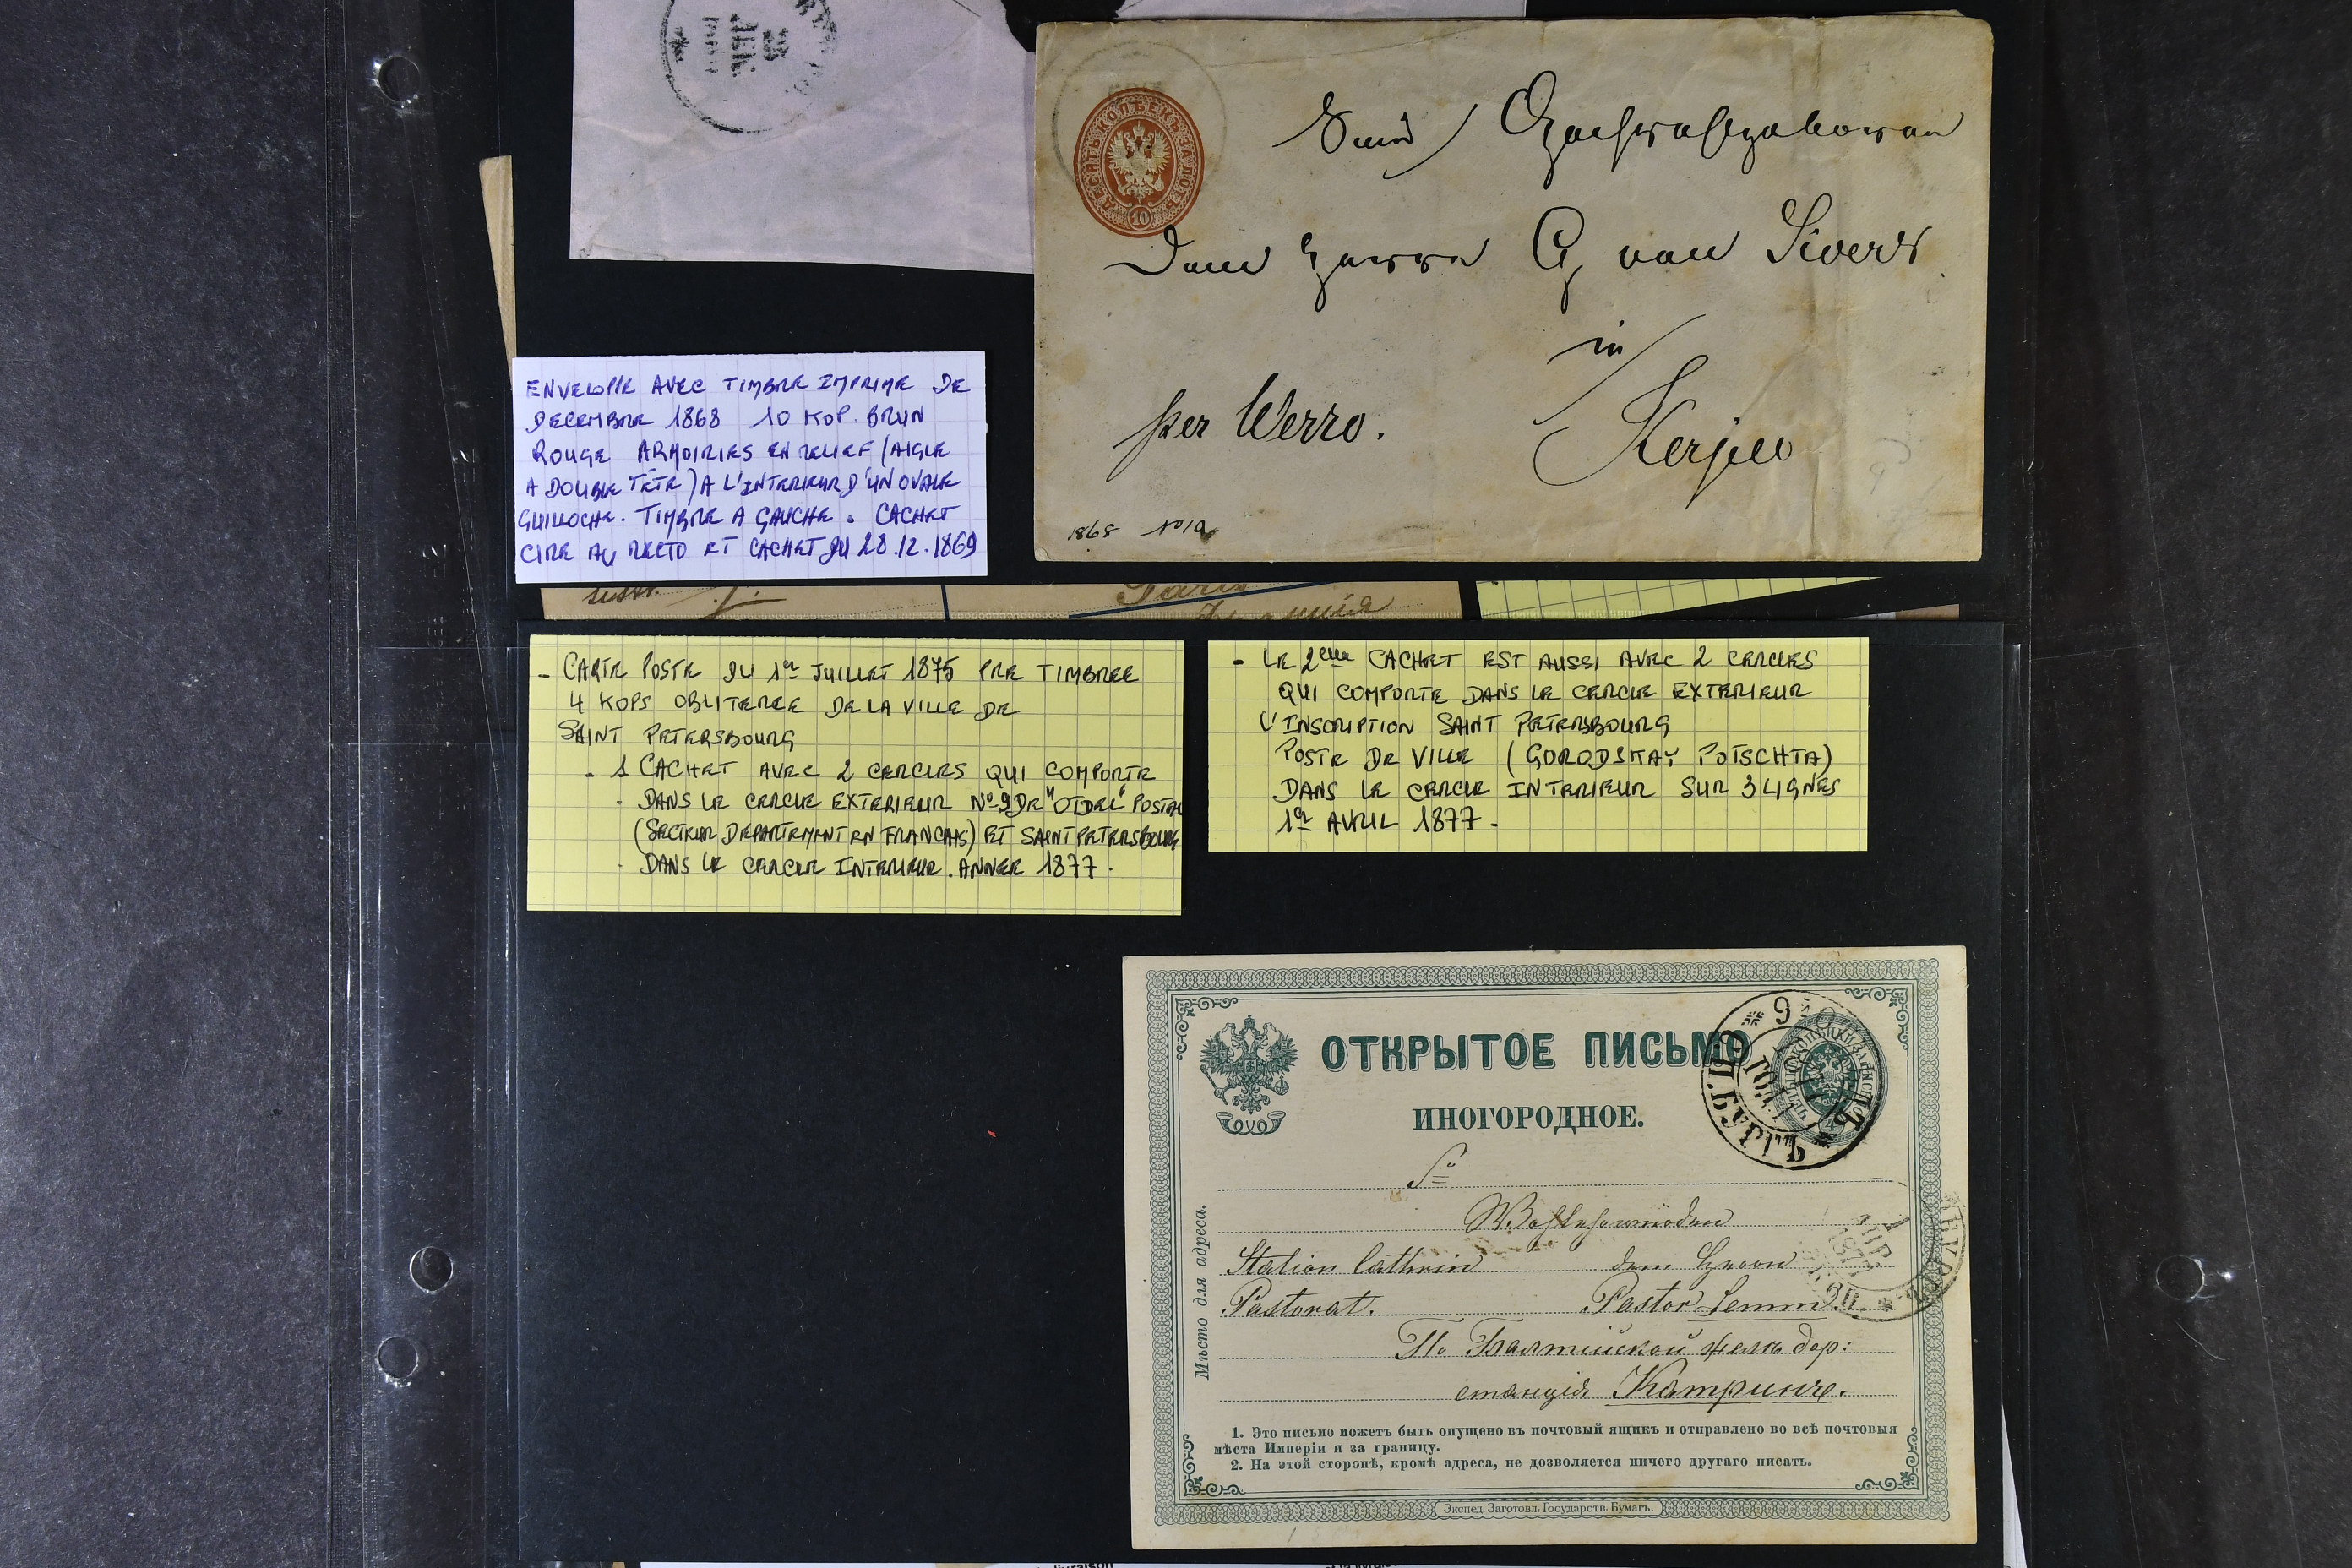 10
dem Herrn G. von Sivers
in
per Werro.
Kerjell
1868 N° 1a
ENVELOPPE AVEC TIMBRE IMPRIME DE
DECEMBRE 1868 10 KOP. BRUN
ROUGE ARMOIRIES EN RELIEF (AIGLE
A DOUBLE TÊTE) A L'INTERIEUR D'UN OVALE
GUILLOCHE. TIMBRE A GAUCHE. CACHET
CIRE AU RECTO ET CACHET DU 28.12.1869
Paris
- CARTE POSTE DU 1er JUILLET 1875 PRE TIMBREE
4 KOPS OBLITEREE DE LA VILLE DE
SAINT PETERSBOURG
- 1 CACHET AVEC 2 CERCLES QUI COMPORTE
- DANS LE CERCLE EXTERIEUR N° 9 DE "OTDEL" POSTAL
(SECTEUR DEPARTEMENT EN FRANCAIS) ET SAINT PETERSBOURG
- DANS LE CERCLE INTERIEUR. ANNEE 1877.
- LE 2eme CACHET EST AUSSI AVEC 2 CERCLES
QUI COMPORTE DANS LE CERCLE EXTERIEUR
L'INSCRIPTION SAINT PETERSBOURG
POSTE DE VILLE (GORODSKAY POTSCHTA)
DANS LE CERCLE INTERIEUR SUR 3 LIGNES
1er AVRIL 1877 -
ОТКРЫТОЕ ПИСЬМО
ИНОГОРОДНОЕ.
Мѣсто для адреса.
Station Cathrin dem Herrn
Pastorat. Pastor Lemm.
По Балтийской желѣ дор:
станція Катринъ.
1. Это письмо можетъ быть опущено въ почтовый ящикъ и отправлено во всѣ почтовыя
мѣста Имперіи и за границу.
2. На этой сторонѣ, кромѣ адреса, не дозволяется ничего другаго писать.
Экспед. Заготовл. Государств. Бумагъ.